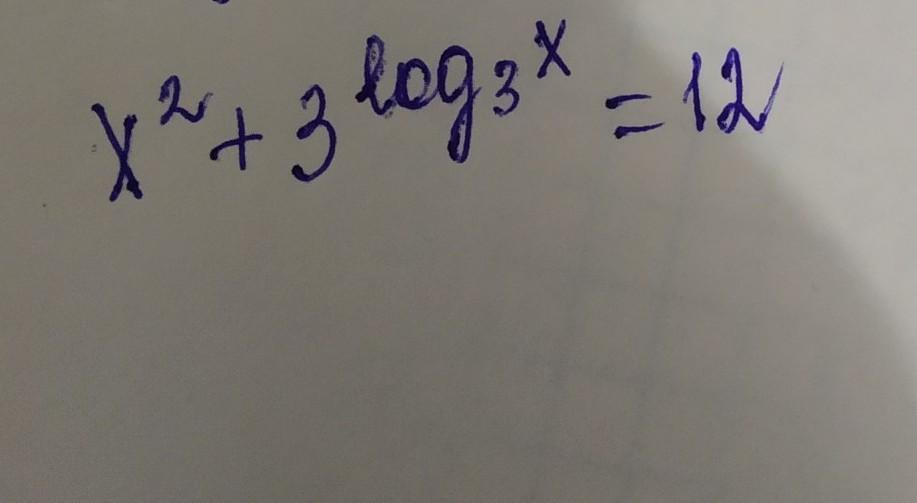 x² + 3^{log₃ x} = 12